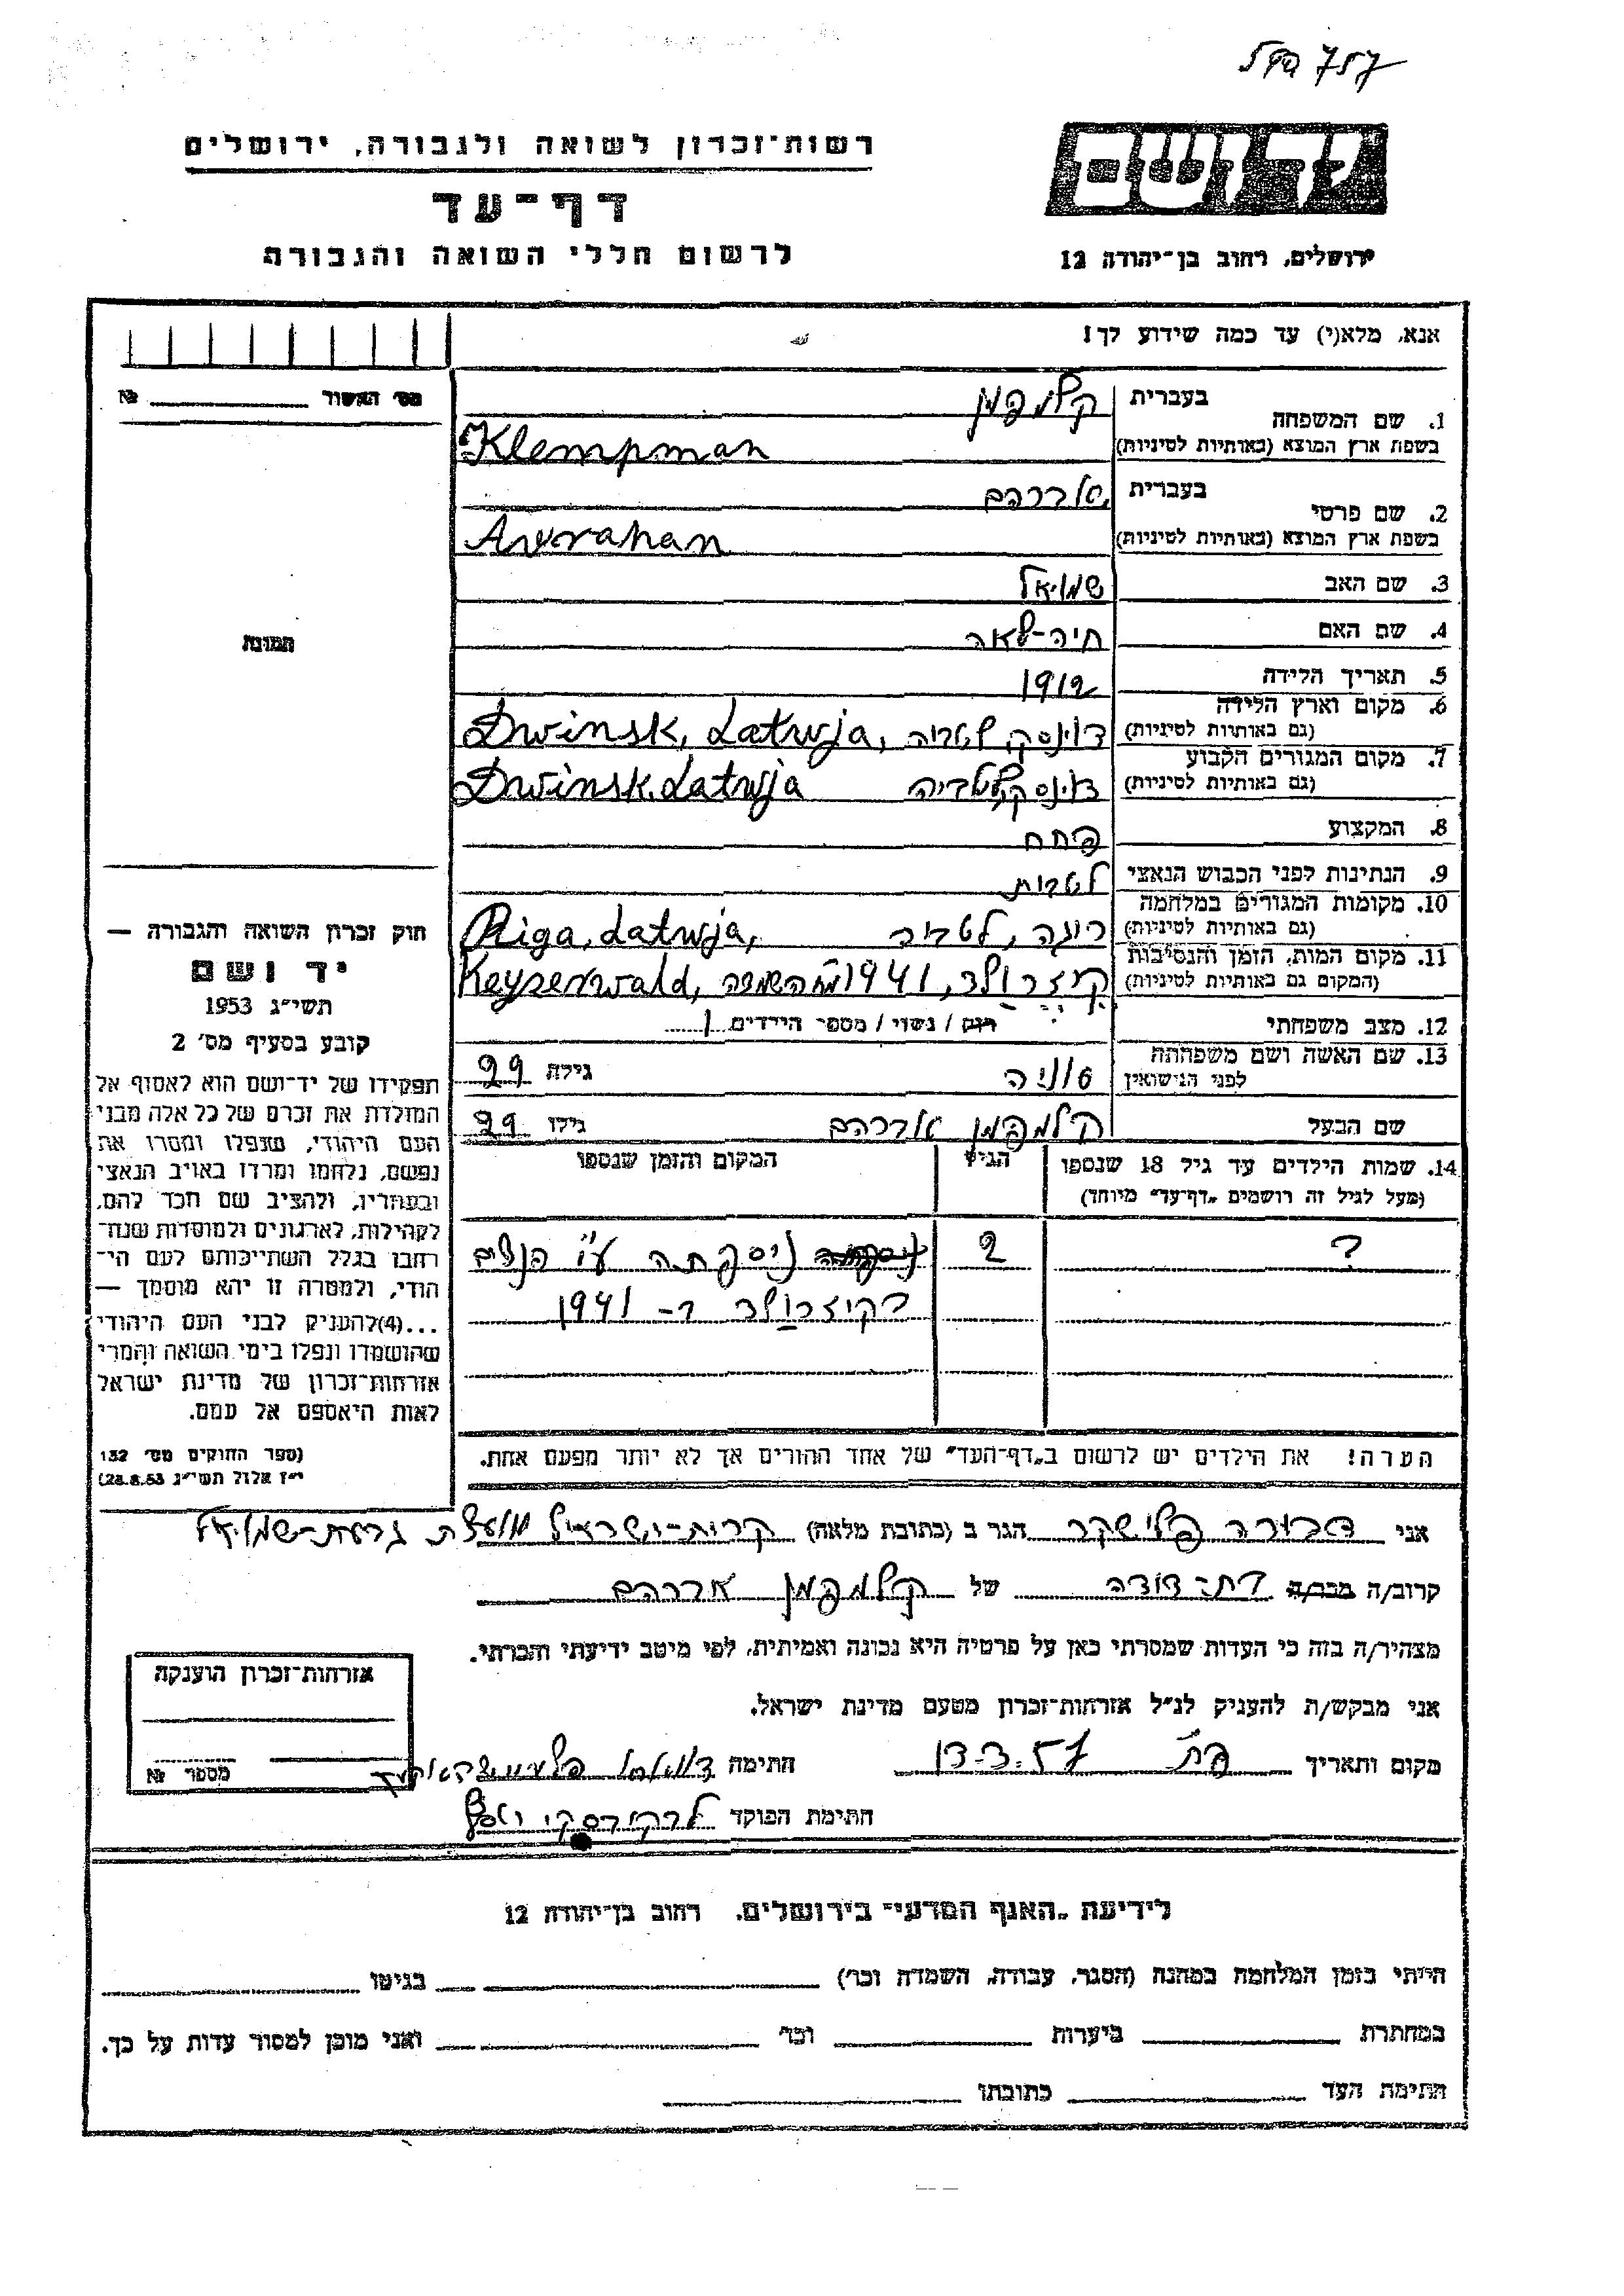 רשות־זכרון לשואה ולגבורה, ירושלים
דף־עד
לרשום חללי השואה והגבורה
יד ושם
ירושלים, רחוב בן־יהודה 12
אנא, מלא(י) עד כמה שידוע לך!
מס׳ האשור № 
1. שם המשפחה
בעברית קלמפמן
בשפת ארץ המוצא (באותיות לטיניות) Klempman
2. שם פרטי
בעברית אברהם
בשפת ארץ המוצא (באותיות לטיניות) Avraham
3. שם האב שמואל
4. שם האם חיה-לאה
5. תאריך הלידה 1912
6. מקום וארץ הלידה
(גם באותיות לטיניות) דוינסק, לטביה, Dwinsk, Latwja
7. מקום המגורים הקבוע
(גם באותיות לטיניות) דוינסק, לטביה Dwinsk. Latwja
8. המקצוע פחח
9. הנתינות לפני הכבוש הנאצי לטבית
10. מקומות המגורים במלחמה
(גם באותיות לטיניות) ריגה, לטביה Riga, Latwja,
11. מקום המות, הזמן והנסיבות
(המקום גם באותיות לטיניות) קיזרולד, 1941 השמדה Keyserwald,
12. מצב משפחתי רוק / נשוי / מספר הילדים 1
13. שם האשה ושם משפחתה
לפני הנישואין סוניה גילה 29
שם הבעל קלמפמן אברהם גילו 29
14. שמות הילדים עד גיל 18 שנספו
(מעל לגיל זה רושמים „דף־עד״ מיוחד)
הגיל
המקום והזמן שנספו
? 2 ניספתה ע״י הנצים
בקיזרולד ב- 1941
הערה! את הילדים יש לרשום ב„דף־העד״ של אחד ההורים אך לא יותר מפעם אחת.
תמונה
חוק זכרון השואה והגבורה —
יד ושם
תשי״ג 1953
קובע בסעיף מס׳ 2
תפקידו של יד־ושם הוא לאסוף אל
המולדת את זכרם של כל אלה מבני
העם היהודי, שנפלו ומסרו את
נפשם, נלחמו ומרדו באויב הנאצי
ובעוזריו, ולהציב שם וזכר להם,
לקהילות, לארגונים ולמוסדות שנח־
רבו בגלל השתייכותם לעם הי־
הודי, ולמטרה זו יהא מוסמך —
...(4) להעניק לבני העם היהודי
שהושמדו ונפלו בימי השואה והמרי
אזרחות־זכרון של מדינת ישראל
לאות היאספם אל עמם.
(ספר החוקים מס׳ 132
י״ז אלול תשי״ג 28.8.53)
אני דבורה פלישקר הגר ב (כתובת מלאה) קרית-ישראל גבעת-שמואל
קרוב/ה מכר/ה בת-דודה של קלמפמן אברהם
מצהיר/ה בזה כי העדות שמסרתי כאן על פרטיה היא נכונה ואמיתית, לפי מיטב ידיעתי והכרתי.
אני מבקש/ת להעניק לנ״ל אזרחות־זכרון מטעם מדינת ישראל.
מקום ותאריך 13.3.57 חתימה
חתימת הפוקד
אזרחות־זכרון הוענקה
מספר №
לידיעת „האגף המדעי״ בירושלים, רחוב בן־יהודה 12
הייתי בזמן המלחמה במחנה (הסגר, עבודה, השמדה וכו׳) בגיטו
במחתרת ביערות וכו׳ ואני מוכן למסור עדות על כך.
חתימת העד כתובתו